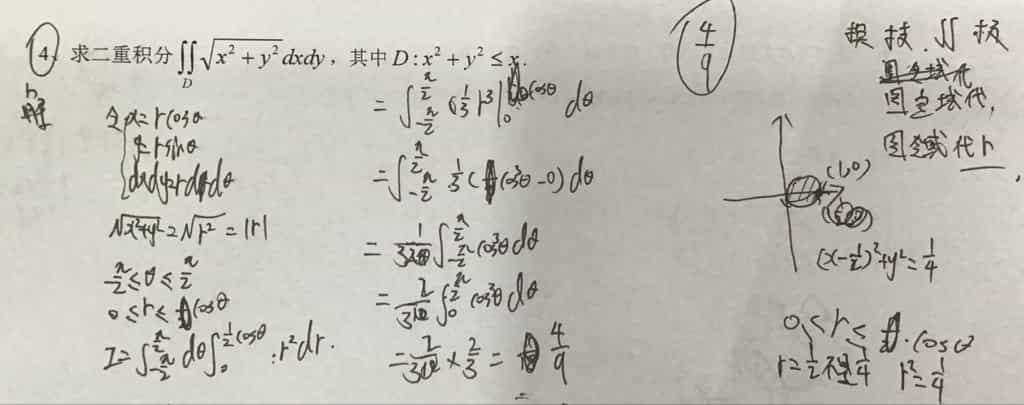 4. 求二重积分 ∬_D √(x² + y²) dxdy，其中 D : x² + y² ≤ x.
解
令 x = r cosθ
y = r sinθ
dxdy = r dr dθ
√(x²+y²) = √r² = |r|
-π/2 ≤ θ ≤ π/2
0 ≤ r ≤ cosθ
I = ∫_{-π/2}^{π/2} dθ ∫_0^{1/2 cosθ} · r² dr.
= ∫_{-π/2}^{π/2} (1/3 r³ |_0^{cosθ} dθ
= ∫_{-π/2}^{π/2} 1/3 (cos³θ - 0) dθ
= 1/3 ∫_{-π/2}^{π/2} cos³θ dθ
= 2/3 ∫_0^{π/2} cos³θ dθ
= 2/3 × 2/3 = 4/9
4/9
(1,0)
(x - 1/2)² + y² = 1/4
0 ≤ r ≤ · cosθ
r = 1/2 不是 1/4 r² = 1/4